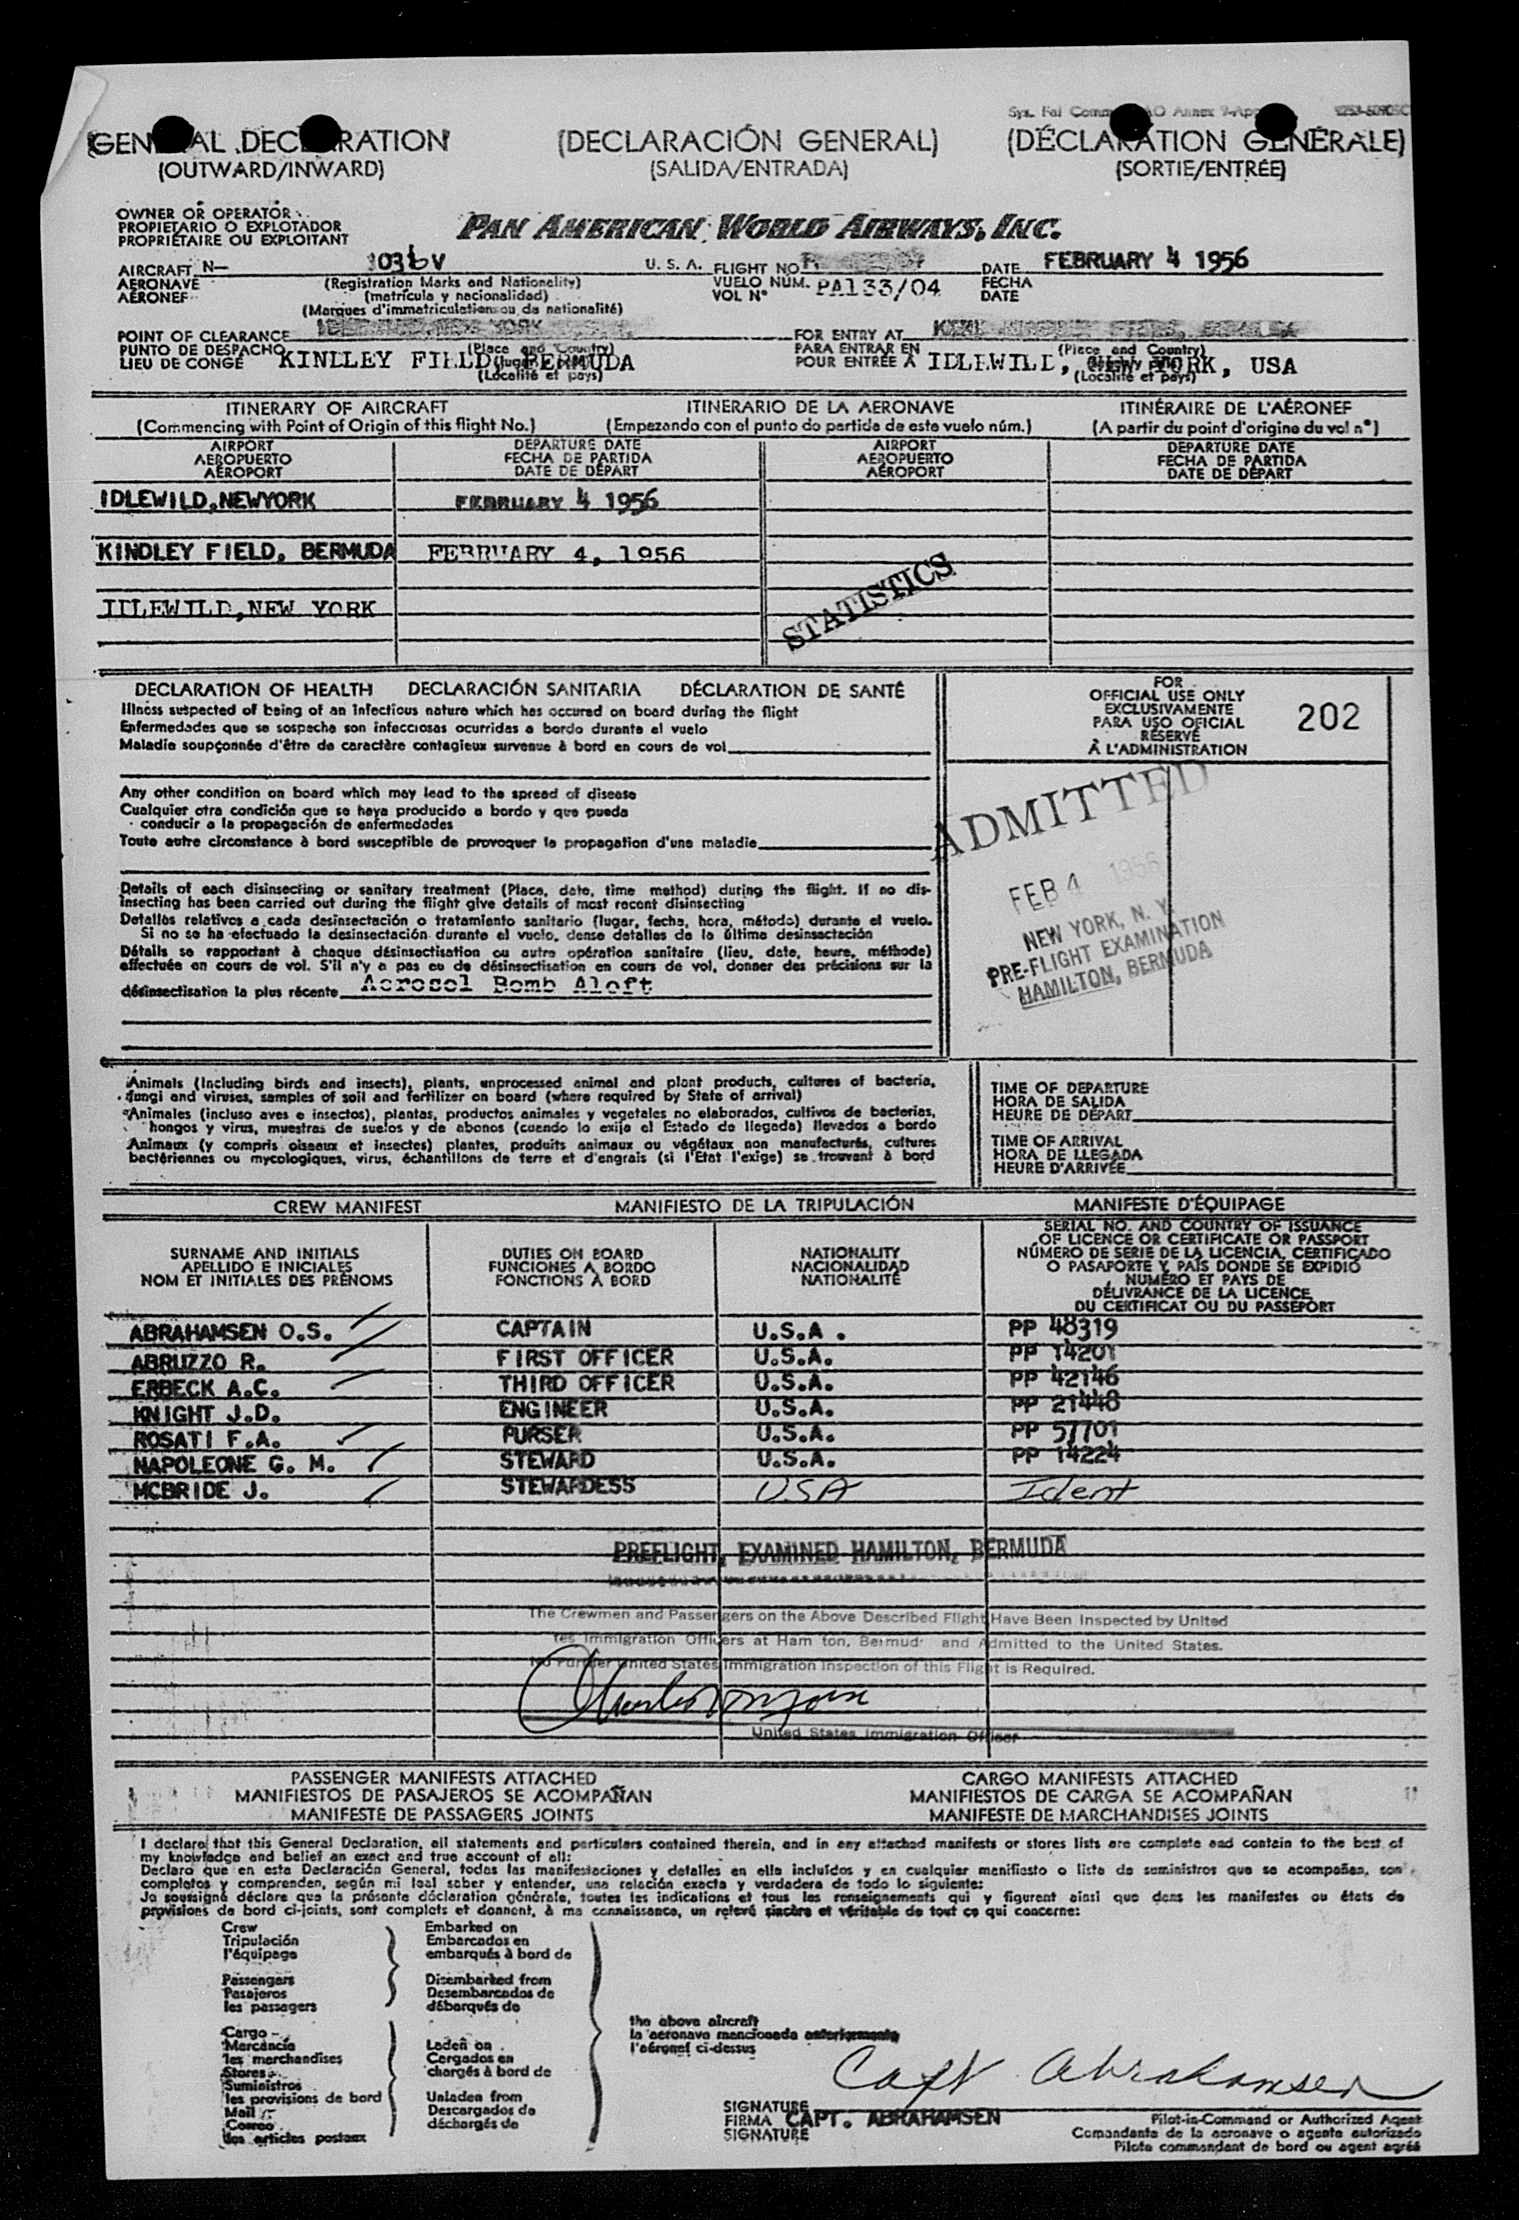 GENERAL DECLARATION
(OUTWARD/INWARD)
(DECLARACIÓN GENERAL)
(SALIDA/ENTRADA)
(DÉCLARATION GÉNÉRALE)
(SORTIE/ENTRÉE)
OWNER OR OPERATOR
PROPIETARIO O EXPLOTADOR
PROPRIÉTAIRE OU EXPLOITANT
PAN AMERICAN WORLD AIRWAYS, INC.
AIRCRAFT N- 1036V U. S. A. FLIGHT NO. DATE FEBRUARY 4 1956
AERONAVE (Registration Marks and Nationality) VUELO NÚM. PA133/04 FECHA
AÉRONEF (matrícula y nacionalidad) VOL Nº DATE
(Marques d'immatriculation ou de nationalité)
POINT OF CLEARANCE FOR ENTRY AT
PUNTO DE DESPACHO (Place and Country) PARA ENTRAR EN (Place and Country)
LIEU DE CONGÉ KINLLEY FIELD, BERMUDA POUR ENTRÉE A IDLEWILD, NEW YORK, USA
(Localité et pays) (Localité et pays)
ITINERARY OF AIRCRAFT ITINERARIO DE LA AERONAVE ITINÉRAIRE DE L'AÉRONEF
(Commencing with Point of Origin of this flight No.) (Empezando con el punto de partida de este vuelo núm.) (A partir du point d'origine du vol nº)
AIRPORT DEPARTURE DATE AIRPORT DEPARTURE DATE
AEROPUERTO FECHA DE PARTIDA AEROPUERTO FECHA DE PARTIDA
AÉROPORT DATE DE DÉPART AÉROPORT DATE DE DÉPART
IDLEWILD, NEWYORK FEBRUARY 4 1956
KINDLEY FIELD, BERMUDA FEBRUARY 4, 1956
STATISTICS
IDLEWILD, NEW YORK
DECLARATION OF HEALTH DECLARACIÓN SANITARIA DÉCLARATION DE SANTÉ
Illness suspected of being of an infectious nature which has occured on board during the flight
Enfermedades que se sospecha son infecciosas ocurridas a bordo durante el vuelo
Maladie soupçonnée d'être de caractère contagieux survenue à bord en cours de vol
Any other condition on board which may lead to the spread of disease
Cualquier otra condición que se haya producido a bordo y que pueda
conducir a la propagación de enfermedades
Toute autre circonstance à bord susceptible de provoquer la propagation d'une maladie
Details of each disinsecting or sanitary treatment (Place, date, time method) during the flight. If no dis-
insecting has been carried out during the flight give details of most recent disinsecting
Detalles relativos a cada desinsectación o tratamiento sanitario (lugar, fecha, hora, método) durante el vuelo.
Si no se ha efectuado la desinsectación durante el vuelo, dense detalles de la última desinsectación
Détails se rapportant à chaque désinsectisation ou autre opération sanitaire (lieu, date, heure, méthode)
effectuée en cours de vol. S'il n'y a pas eu de désinsectisation en cours de vol, donner des précisions sur la
désinsectisation la plus récente Aerosol Bomb Aloft
FOR
OFFICIAL USE ONLY
EXCLUSIVAMENTE
PARA USO OFICIAL
RÉSERVÉ
À L'ADMINISTRATION
202
ADMITTED
FEB 4 1956
NEW YORK, N. Y.
PRE-FLIGHT EXAMINATION
HAMILTON, BERMUDA
Animals (Including birds and insects), plants, unprocessed animal and plant products, cultures of bacteria,
fungi and viruses, samples of soil and fertilizer on board (where required by State of arrival)
Animales (incluso aves e insectos), plantas, productos animales y vegetales no elaborados, cultivos de bacterias,
hongos y virus, muestras de suelos y de abonos (cuando lo exija el Estado de llegada) llevados a bordo
Animaux (y compris oiseaux et insectes) plantes, produits animaux ou végétaux non manufacturés, cultures
bactériennes ou mycologiques, virus, échantillons de terre et d'engrais (si l'Etat l'exige) se trouvant à bord
TIME OF DEPARTURE
HORA DE SALIDA
HEURE DE DÉPART
TIME OF ARRIVAL
HORA DE LLEGADA
HEURE D'ARRIVÉE
CREW MANIFEST MANIFIESTO DE LA TRIPULACIÓN MANIFESTE D'ÉQUIPAGE
SURNAME AND INITIALS
APELLIDO E INICIALES
NOM ET INITIALES DES PRÉNOMS
DUTIES ON BOARD
FUNCIONES A BORDO
FONCTIONS À BORD
NATIONALITY
NACIONALIDAD
NATIONALITÉ
SERIAL NO. AND COUNTRY OF ISSUANCE
OF LICENCE OR CERTIFICATE OR PASSPORT
NÚMERO DE SERIE DE LA LICENCIA, CERTIFICADO
O PASAPORTE Y PAÍS DONDE SE EXPIDIÓ
NUMÉRO ET PAYS DE
DÉLIVRANCE DE LA LICENCE
DU CERTIFICAT OU DU PASSEPORT
ABRAHAMSEN O.S. CAPTAIN U.S.A. PP 48319
ABRUZZO R. FIRST OFFICER U.S.A. PP 14201
ERBECK A.C. THIRD OFFICER U.S.A. PP 42146
KNIGHT J.D. ENGINEER U.S.A. PP 21448
ROSATI F.A. PURSER U.S.A. PP 57701
NAPOLEONE G. M. STEWARD U.S.A. PP 14224
MCBRIDE J. STEWARDESS USA Ident
PREFLIGHT, EXAMINED HAMILTON, BERMUDA
The Crewmen and Passengers on the Above Described Flight Have Been Inspected by United
Immigration Officers at Ham ton, Bermud and Admitted to the United States.
No Further United States Immigration Inspection of this Flight is Required.
United States Immigration Officer
PASSENGER MANIFESTS ATTACHED CARGO MANIFESTS ATTACHED
MANIFIESTOS DE PASAJEROS SE ACOMPAÑAN MANIFIESTOS DE CARGA SE ACOMPAÑAN
MANIFESTE DE PASSAGERS JOINTS MANIFESTE DE MARCHANDISES JOINTS
I declare that this General Declaration, all statements and particulars contained therein, and in any attached manifests or stores lists are complete and contain to the best of
my knowledge and belief an exact and true account of all:
Declaro que en esta Declaración General, todas las manifestaciones y detalles en ella incluídos y en cualquier manifiesto o lista de suministros que se acompañan, son
completos y comprenden, según mi leal saber y entender, una relación exacta y verdadera de todo lo siguiente:
Je soussigné déclare que la présente déclaration générale, toutes les indications et tous les renseignements qui y figurent ainsi que dans les manifestes ou états de
provisions de bord ci-joints, sont complets et donnent, à ma connaissance, un relevé sincère et véritable de tout ce qui concerne:
Crew Embarked on
Tripulación Embarcados en
l'équipage embarqués à bord de
Passengers Disembarked from
Pasajeros Desembarcados de
les passagers débarqués de
the above aircraft
la aeronave mencionada anteriormente
l'aéronef ci-dessus
Cargo
Mercancía Laden on
les marchandises Cargados en
Stores chargés à bord de
Suministros
les provisions de bord Unladen from
Mail Descargados de
Correo déchargés de
les articles postaux
Capt Abrahamsen
SIGNATURE
FIRMA CAPT. ABRAHAMSEN
SIGNATURE
Pilot-in-Command or Authorized Agent
Comandante de la aeronave o agente autorizado
Pilote commandant de bord ou agent agréé